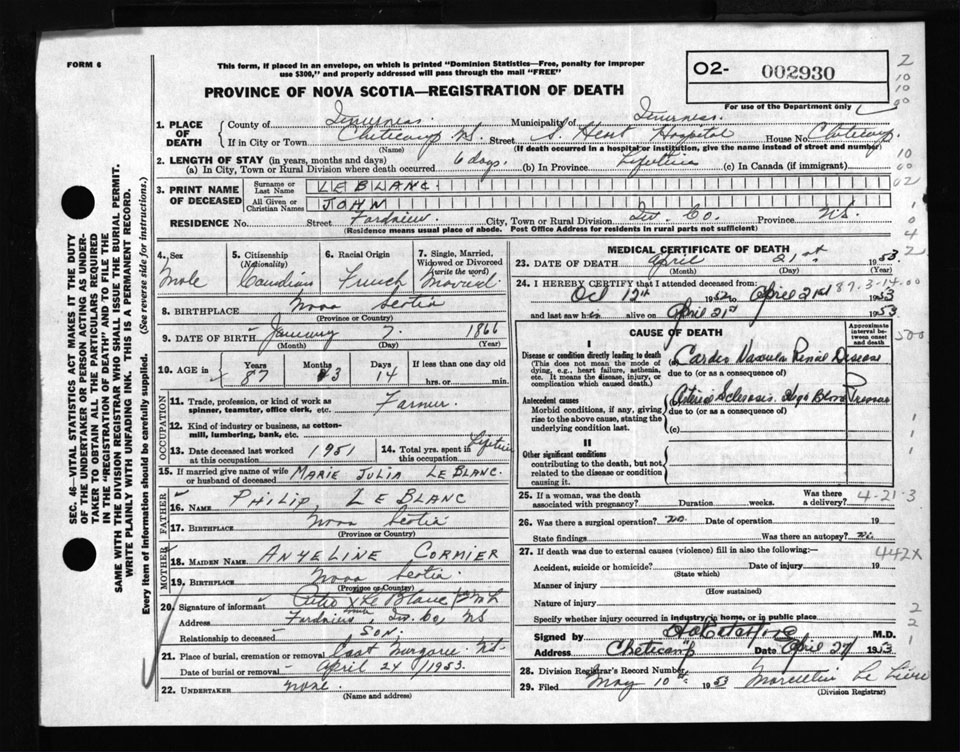 FORM 6
This form, if placed in an envelope, on which is printed "Dominion Statistics—Free, penalty for improper
use $300," and properly addressed will pass through the mail "FREE"
O2- 002930
For use of the Department only
PROVINCE OF NOVA SCOTIA—REGISTRATION OF DEATH
1. PLACE OF DEATH
County of Inverness Municipality of Inverness
If in City or Town Cheticamp NS. Street S. Heart Hospital House No. Cheticamp.
(Name) (If death occurred in a hospital or institution, give the name instead of street and number)
2. LENGTH OF STAY (in years, months and days)
(a) In City, Town or Rural Division where death occurred 6 days. (b) In Province Lifetime (c) In Canada (if immigrant)
3. PRINT NAME OF DECEASED
Surname or Last Name LE BLANC.
All Given or Christian Names JOHN
RESIDENCE No. Street City, Town or Rural Division Inv. Co. Province N.S.
(Residence means usual place of abode. Post Office Address for residents in rural parts not sufficient)
4. Sex Male
5. Citizenship (Nationality) Canadian
6. Racial Origin French
7. Single, Married, Widowed or Divorced (write the word) Married.
8. BIRTHPLACE Nova Scotia
(Province or Country)
9. DATE OF BIRTH January 7. 1866
(Month) (Day) (Year)
10. AGE in Years 87 Months 3 Days 14 If less than one day old
hrs. or min.
OCCUPATION
11. Trade, profession, or kind of work as
spinner, teamster, office clerk, etc. Farmer.
12. Kind of industry or business, as cotton-
mill, lumbering, bank, etc.
13. Date deceased last worked
at this occupation 1951
14. Total yrs. spent in
this occupation Lifetime
15. If married give name of wife
or husband of deceased MARIE JULIA LE BLANC.
FATHER
16. NAME PHILIP LE BLANC
17. BIRTHPLACE Nova Scotia
(Province or Country)
MOTHER
18. MAIDEN NAME ANYELINE CORMIER
19. BIRTHPLACE Nova Scotia
(Province or Country)
20. Signature of informant X Le Blanc
Address Inv. Co, NS
Relationship to deceased SON.
21. Place of burial, cremation or removal East Margaree N.S.
Date of burial or removal April 24 1953.
22. UNDERTAKER none.
(Name and address)
MEDICAL CERTIFICATE OF DEATH
23. DATE OF DEATH April 21st 1953
(Month) (Day) (Year)
24. I HEREBY CERTIFY that I attended deceased from:
Oct 12th 1952 to April 21st 1953
and last saw him alive on April 21st 1953
87.3-14.00
CAUSE OF DEATH
Approximate interval between onset and death
I
Disease or condition directly leading to death
(This does not mean the mode of
dying, e.g., heart failure, asthenia,
etc. It means the disease, injury, or
complication which caused death.)
(a) Cardio Vascular Renal Disease
due to (or as a consequence of)
Antecedent causes
Morbid conditions, if any, giving
rise to the above cause, stating the
underlying condition last.
(b) Arterio Sclerosis. High Blood Pressure
due to (or as a consequence of)
(c)
II
Other significant conditions
contributing to the death, but not
related to the disease or condition
causing it.
25. If a woman, was the death
associated with pregnancy? Duration weeks. Was there
a delivery?
4-21-3
26. Was there a surgical operation? no. Date of operation 19
State findings Was there an autopsy? No
27. If death was due to external causes (violence) fill in also the following:
442X
Accident, suicide or homicide? Date of injury 19
(State which)
Manner of injury
(How sustained)
Nature of injury
Specify whether injury occurred in industry, in home, or in public place
Signed by M.D.
Address Cheticamp Date April 27 1953
28. Division Registrar's Record Number
29. Filed May 10th 1953 Le Lievre
(Division Registrar)
SEC. 46—VITAL STATISTICS ACT MAKES IT THE DUTY
OF THE UNDERTAKER OR PERSON ACTING AS UNDER-
TAKER TO OBTAIN ALL THE PARTICULARS REQUIRED
IN THE "REGISTRATION OF DEATH" AND TO FILE THE
SAME WITH THE DIVISION REGISTRAR WHO SHALL ISSUE THE BURIAL PERMIT.
WRITE PLAINLY WITH UNFADING INK. THIS IS A PERMANENT RECORD.
Every item of Information should be carefully supplied. (See reverse side for instructions.)